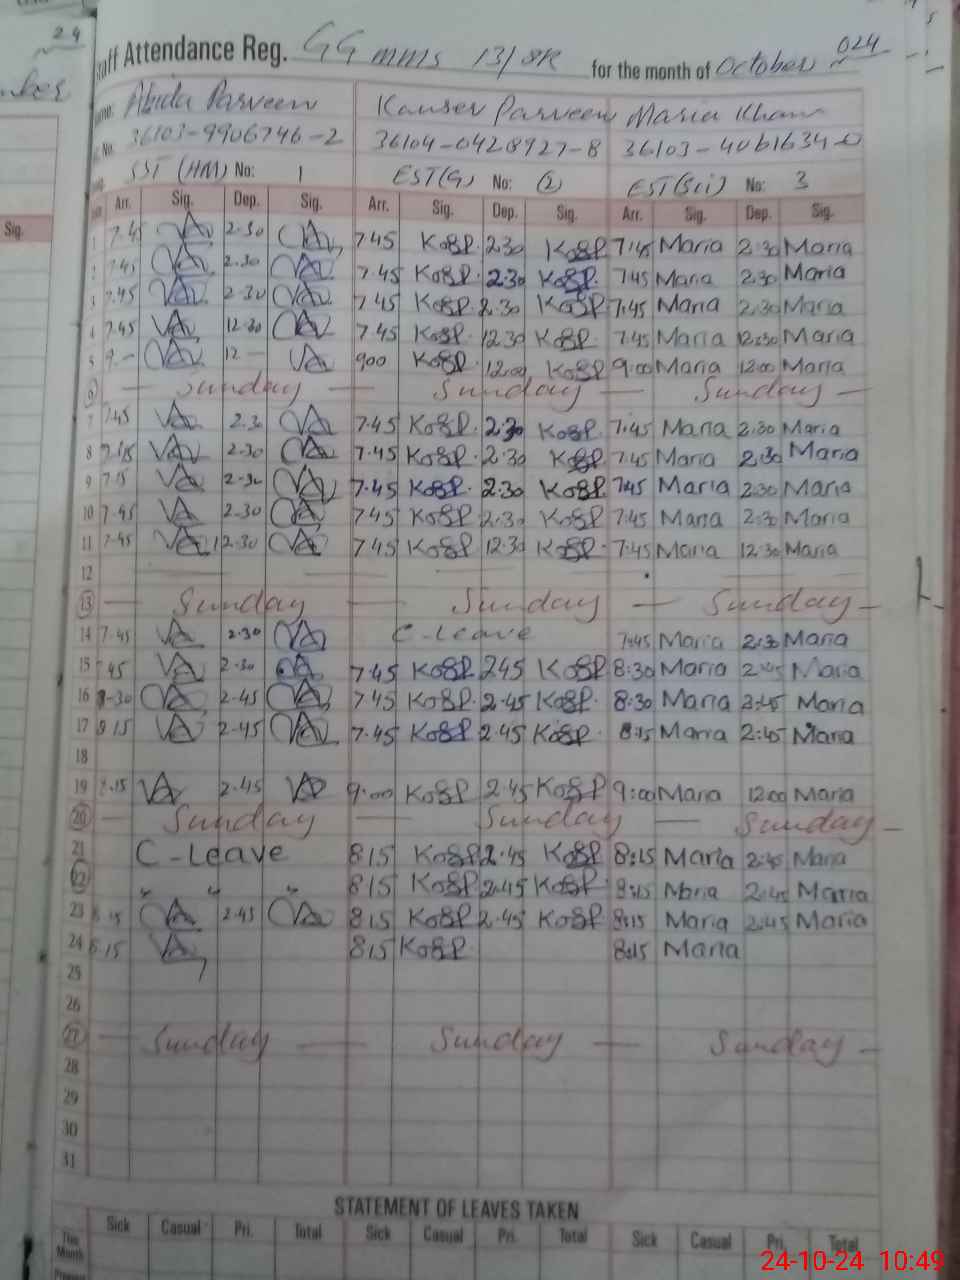 24
Staff Attendance Reg. GG mms 13/8R for the month of October 024
Name: Abida Parveen Kauser Parveen Maria Khan
No. 36103-9906746-2 36104-0428927-8 36103-4061634-0
SST (HM) No: 1 EST(G) No: (2) EST(Sci) No: 3
Sig. Arr. Sig. Dep. Sig. Arr. Sig. Dep. Sig. Arr. Sig. Dep. Sig.
1 7.45 2.30 7.45 KOSP. 2.30 KOSP 7:45 Maria 2:30 Maria
2 7.45 2.30 7.45 KOSP. 2.30 KOSP. 7:45 Maria 2:30 Maria
3 7.45 2.30 7.45 KOSP. 2.30 KOSP 7:45 Maria 2:30 Maria
4 7.45 12.30 7.45 KOSP. 12.30 KOSP. 7:45 Maria 12:30 Maria
5 9.- 12 - 900 KOSP. 12.00 KOSP 9:00 Maria 12:00 Maria
6 — Sunday — Sunday — Sunday —
7 7.45 2.30 7.45 KOSP. 2.30 KOSP. 7:45 Maria 2:30 Maria
8 2.30 7.45 KOSP. 2.30 KOSP. 7:45 Maria 2:30 Maria
9 2.30 7.45 KOSP. 2.30 KOSP 7:45 Maria 2:30 Maria
10 7.45 2.30 7.45 KOSP. 2.30 KOSP 7:45 Maria 2:30 Maria
11 7.45 12.30 7.45 KOSP. 12.30 KOSP. 7:45 Maria 12:30 Maria
12
13 — Sunday — Sunday — Sunday —
14 7.45 2.30 C-Leave 7:45 Maria 2:30 Maria
15 45 2.30 7.45 KOSP. 245 KOSP 8:30 Maria 2:45 Maria
16 8-30 2.45 7.45 KOSP. 2.45 KOSP. 8:30 Maria 2:45 Maria
17 8 15 2.45 7.45 KOSP. 2.45 KOSP. 8:15 Maria 2:45 Maria
18
19 8.15 2.45 9:00 KOSP. 2.45 KOSP 9:00 Maria 12:00 Maria
20 — Sunday — Sunday — Sunday —
21 C-Leave 815 KOSP 2.45 KOSP 8:15 Maria 2:45 Maria
22 " " " 815 KOSP 2.45 KOSP. 8:15 Maria 2:45 Maria
23 8.15 2.45 815 KOSP 2.45 KOSP. 8:15 Maria 2:45 Maria
24 8.15 815 KOSP. 8:15 Maria
25
26
27 — Sunday — Sunday — Sunday —
28
29
30
31
STATEMENT OF LEAVES TAKEN
Sick Casual Pri. Total Sick Casual Pri. Total Sick Casual Pri. Total
This Month
24-10-24 10:49